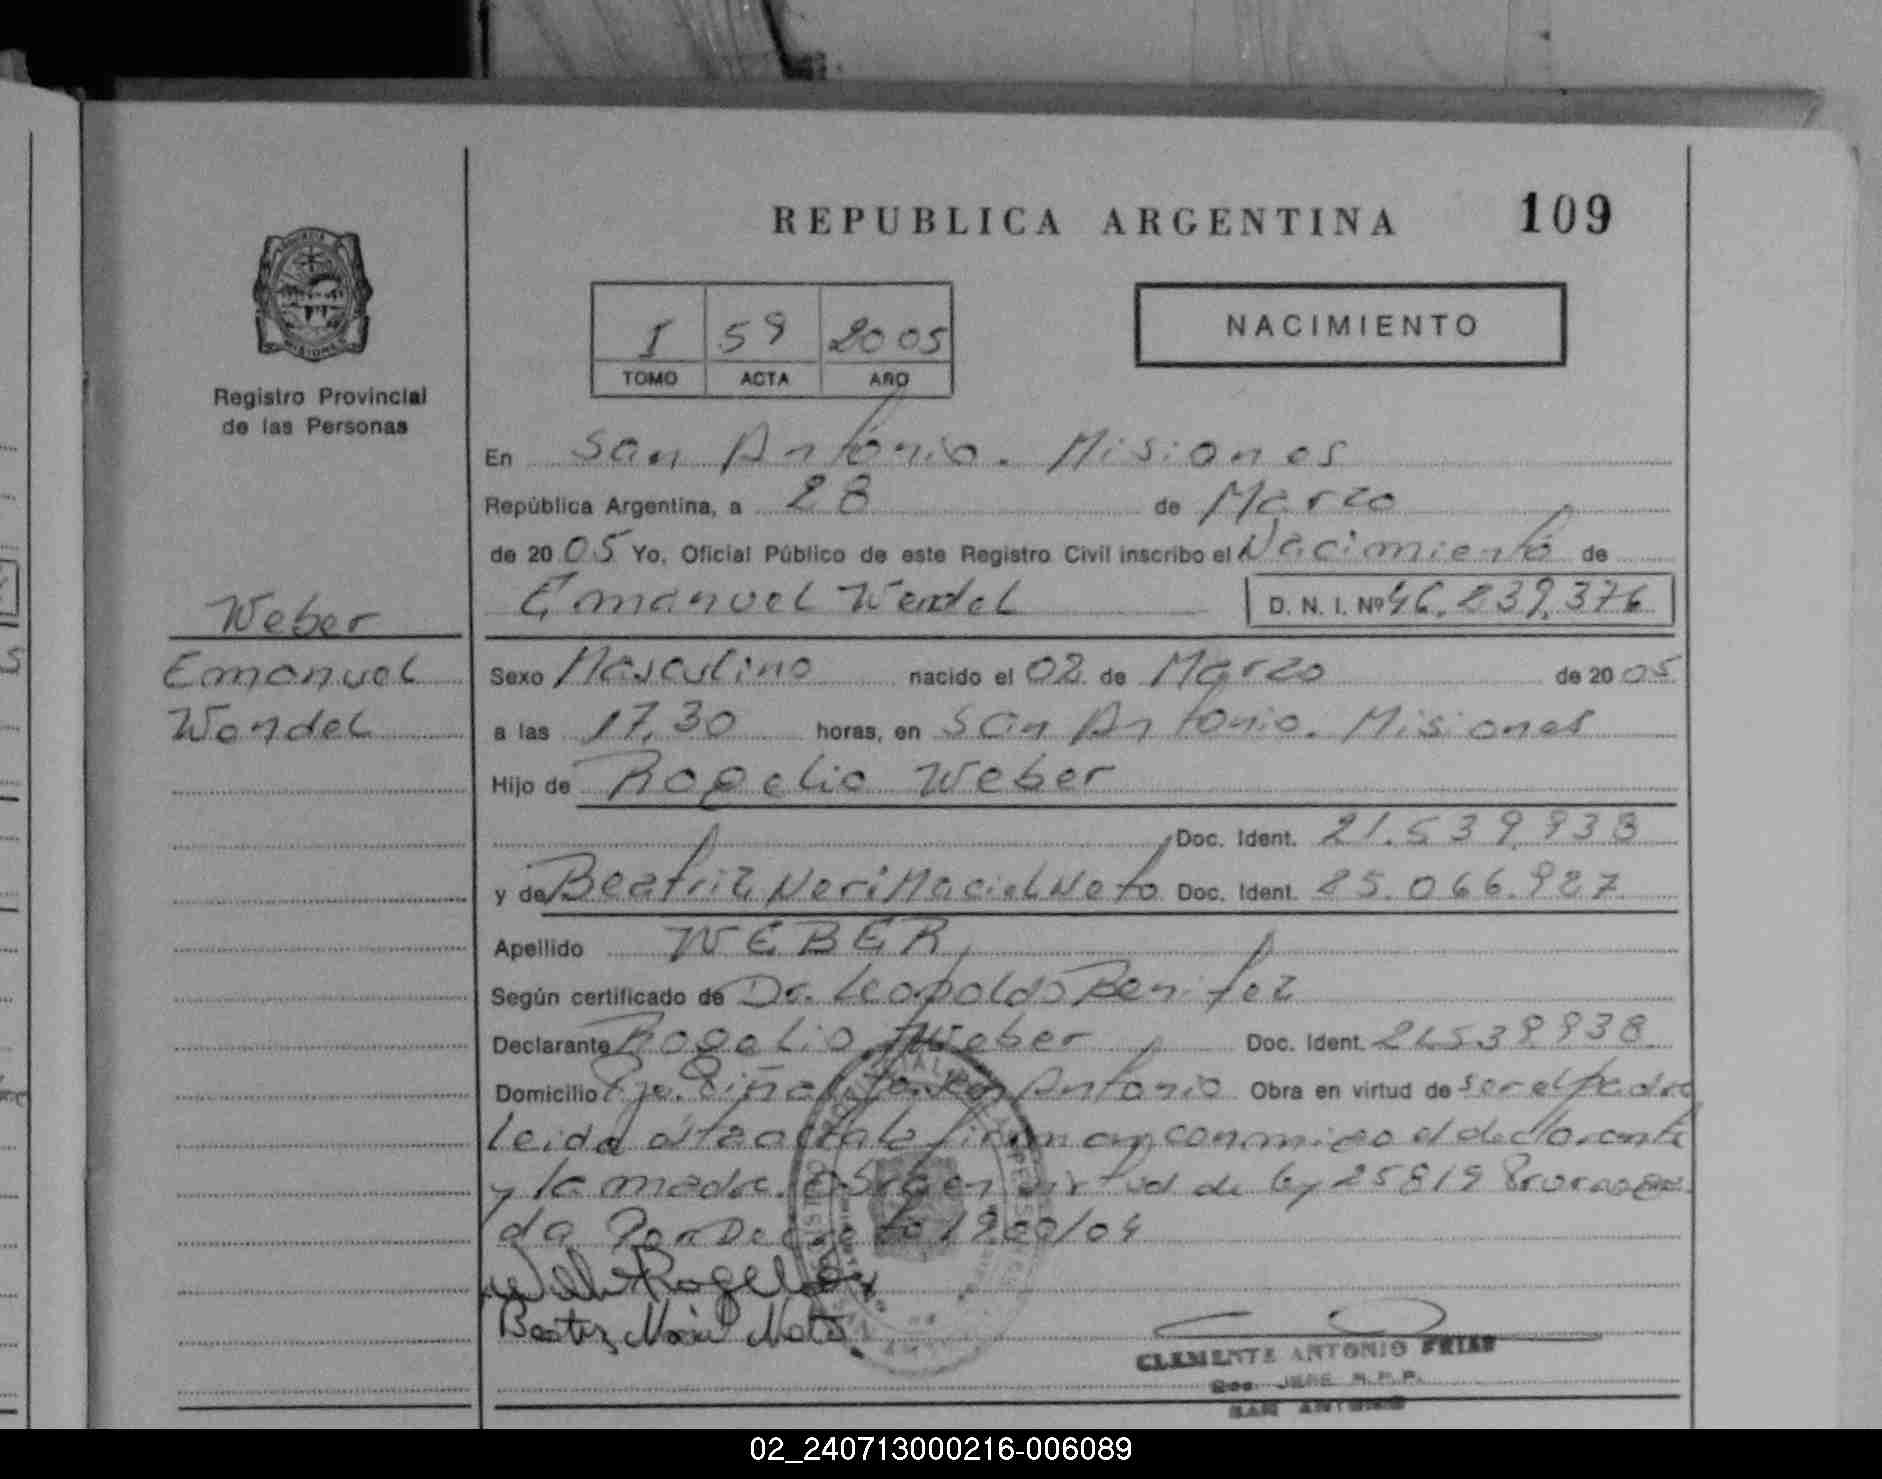 REPUBLICA ARGENTINA 109
Registro Provincial
de las Personas
I 59 2005
TOMO ACTA AÑO
NACIMIENTO
En San Antonio. Misiones
República Argentina, a 28 de Marzo
de 2005 Yo, Oficial Público de este Registro Civil inscribo el Nacimiento de
Emanuel Wendel D. N. I. Nº 46.839.376
Weber
Emanuel
Wendel
Sexo Masculino nacido el 02 de Marzo de 2005
a las 17,30 horas, en San Antonio. Misiones
Hijo de Rogelio Weber
Doc. Ident. 21.539.938
y de Beatriz Neri Maciel Neto Doc. Ident. 25.066.927
Apellido WEBER
Según certificado de Dr. Leopoldo Benitez
Declarante Rogelio Weber Doc. Ident. 21.539.938
Domicilio Pje. Piñalito. San Antonio Obra en virtud de ser el padre
Leida esta acta la firman conmigo el declarante
y la madre. Obra en virtud de ley 25819 Prorroga
da Por Decreto 1900/04
Weber Rogelio
Beatriz Neto
CLEMENTE ANTONIO FRIAS
JEFE R.P.P.
SAN ANTONIO
02_240713000216-006089